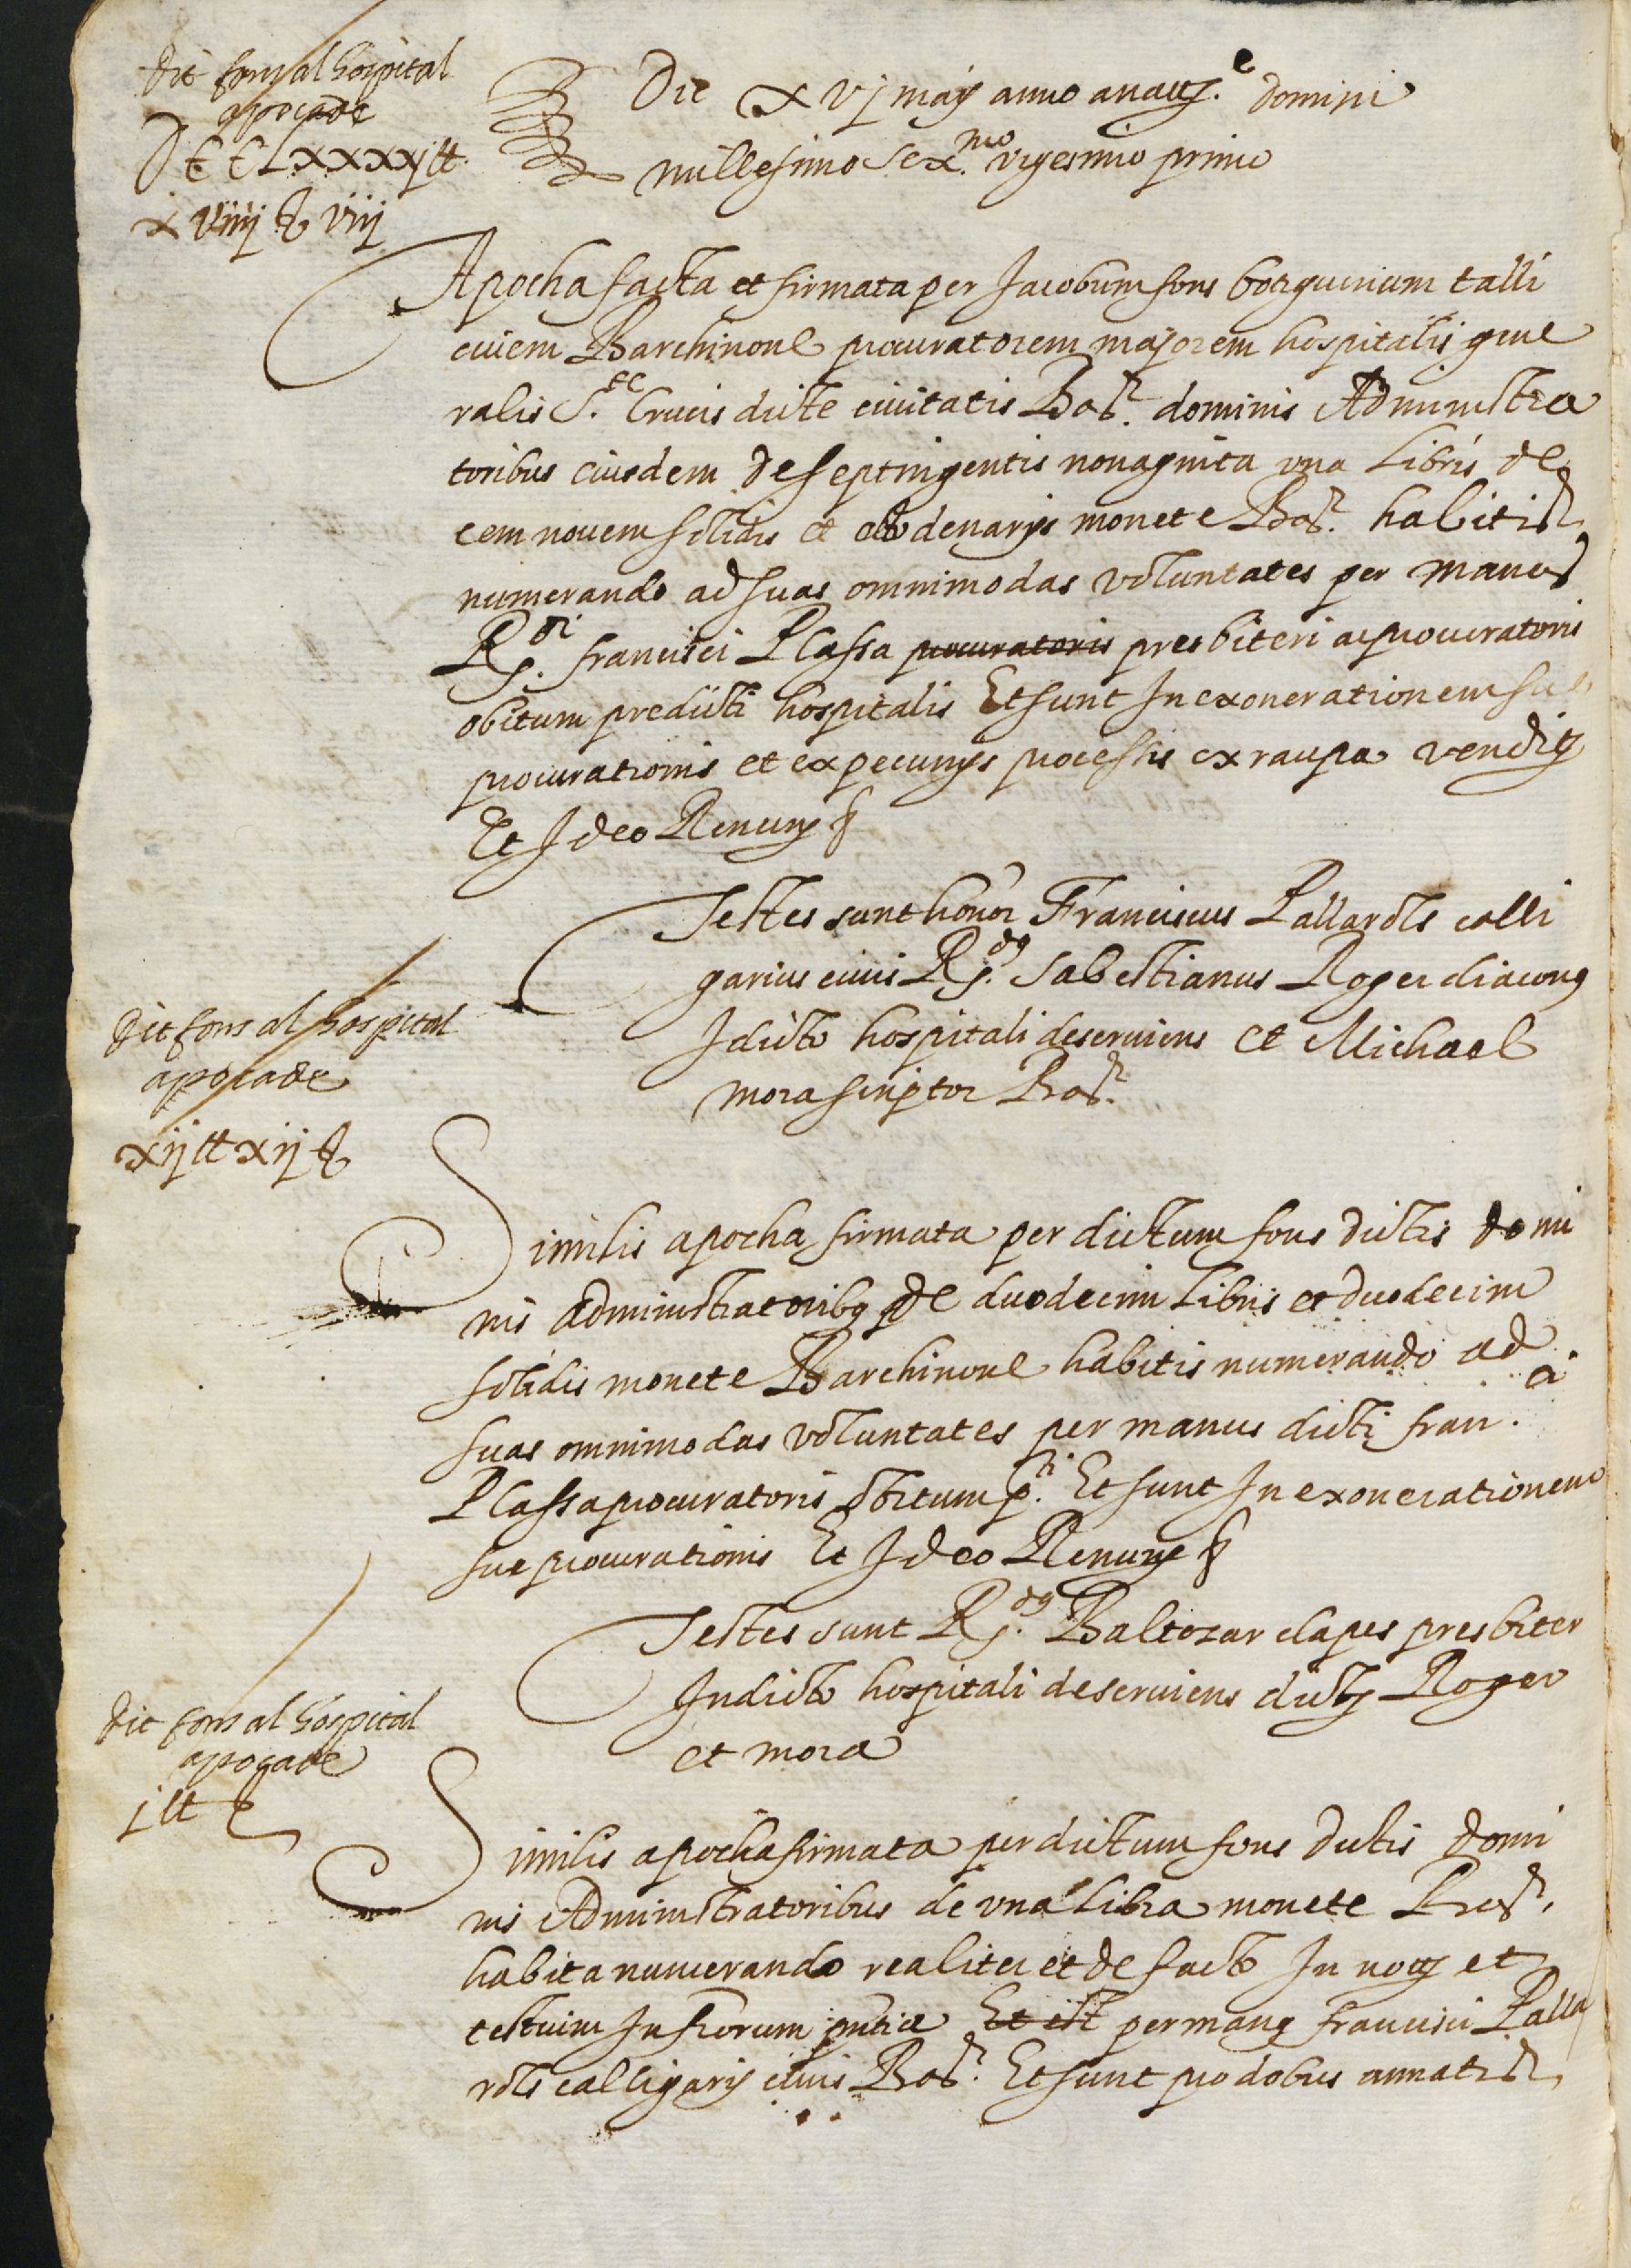 dit fons al hospital
apoca de
DCCLXXXXj ll
x viiij ẜ viij
Die xvj maij anno a natt.e domini
millesimo sex.mo vigesimo primo
Apocha facta et firmata per Jacobum fons botiguerium talli
civem Barchinone procuratorem majorem hospitalis gene
ralis S.te Crucis dicte civitatis Bar. dominis Administra
toribus eiusdem de septingentis nonaginta una libris de
cem novem solidis et octo denarijs monete Bar. habitis
numerando ad suas omnimodas voluntates per manus
R.di francisci Plassa procuratoris presbiteri ac procuratoris
obituum predicti hospitalis Et sunt In exonerationem sue
procurationis et ex pecunijs processis ex raupa vendig
Et Ideo Renunij
Testes sunt honor Franciscus Pallarols calli
garius civis R.dus Sabestianus Roger diaconus
I dicto hospitali deserviens et Michael
mora scriptor Bar.
dit fons al hospital
apoca de
xij ll xij ẜ
Similis apocha firmata per dictum fons dictis domi
nis administratoribus de duodecim libris et duodecim
solidis monete Barchinone habitis numerando ad
suas omnimodas voluntates per manus dicti fran.ci
Plassa procuratoris obituum p.ti Et sunt In exonerationem
sue procurationis Et Ideo Renunije
Testes sunt R.dus Baltezar clapes presbiter
In dicto hospitali deserviens dictus Roger
et mora
dit fons al hospital
apoca de
j ll
Similis apocha firmata per dictum fons dictis domi
nis Administratoribus de una libra monete Bar.
habita numerando realiter et de facto In noy et
testium Infrorum pntia Et est per manus francisci Palla
rols calligarij civis Bar. Et sunt pro dobus annatis